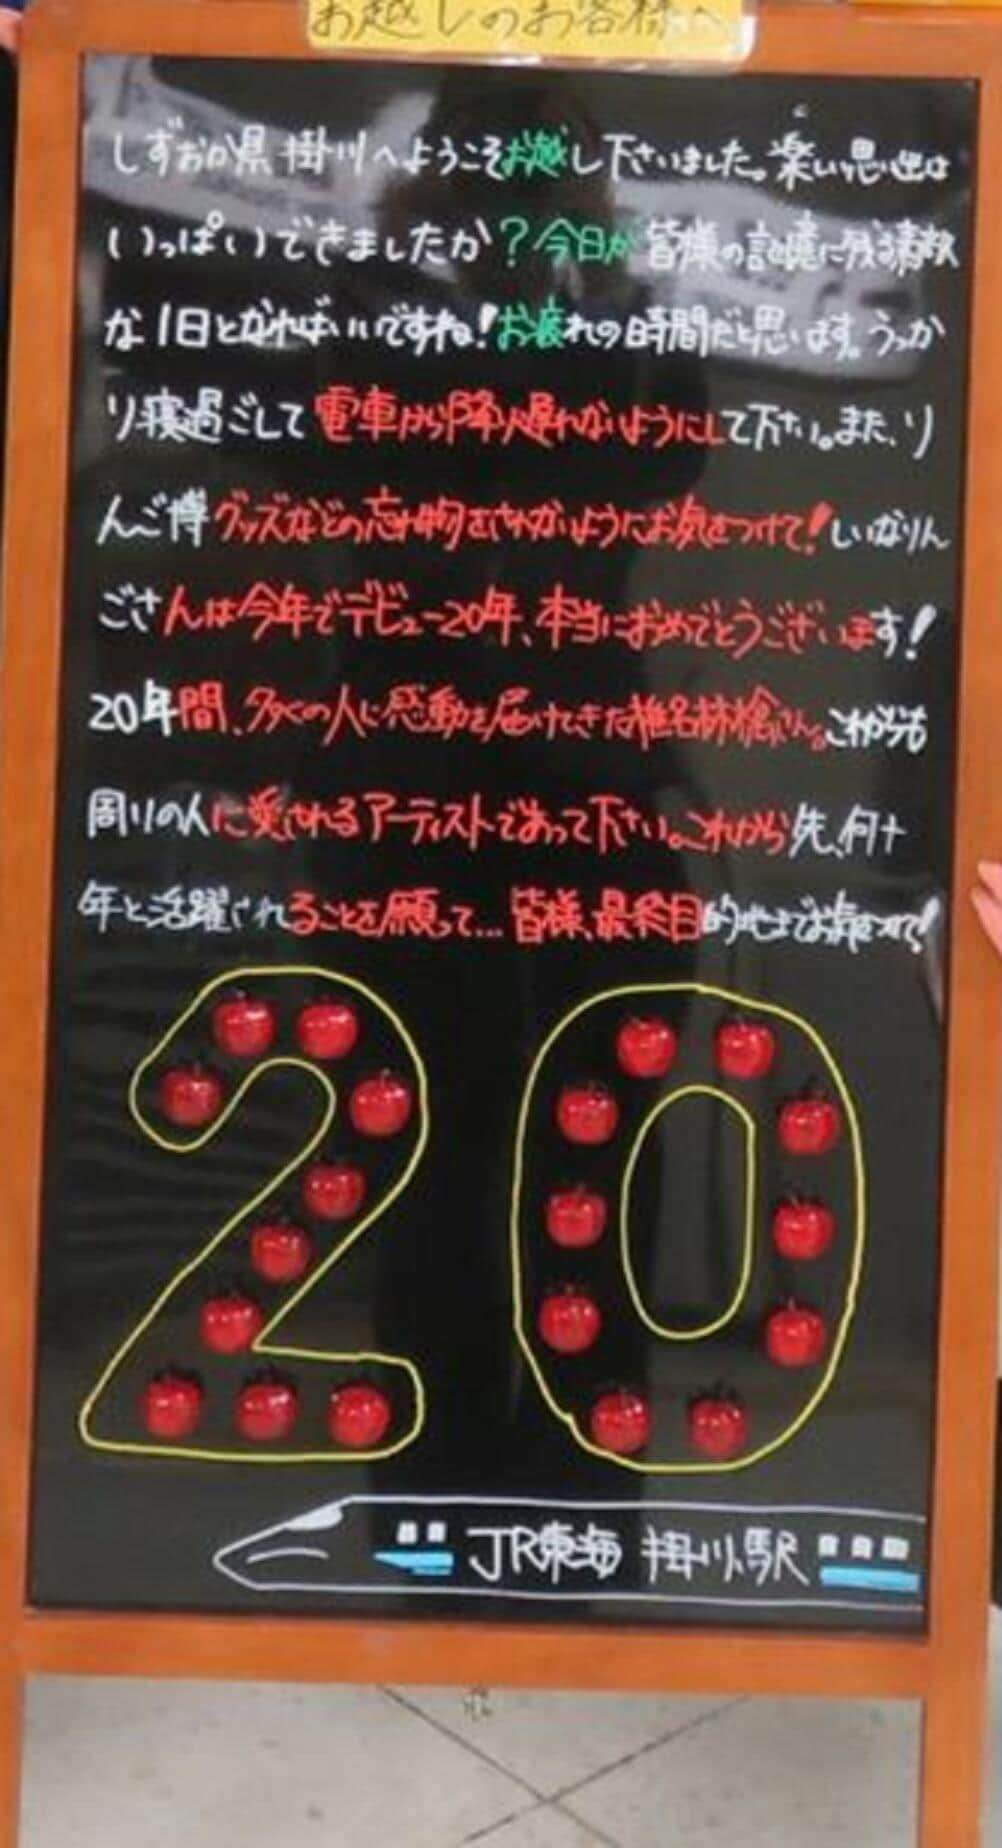 お越しのお客様へ
しずおか県掛川へようこそお越し下さいました。楽しい思い出は
いっぱいできましたか?今日が皆様の記憶に残る素敵
な1日となればいいですね!お疲れの時間だと思います。うっか
り寝過ごして電車から降り遅れないようにして下さい。また、り
んご博グッズなどの忘れ物をされないようにお気をつけて!しいなりん
ごさんは今年でデビュー20年、本当におめでとうございます!
20年間、多くの人に感動を届けてきた椎名林檎さん。これからも
周りの人に愛されるアーティストであって下さい。これから先、何十
年と活躍されることを願って…皆様、最終目的地までお気をつけて!
20
JR東海 掛川駅